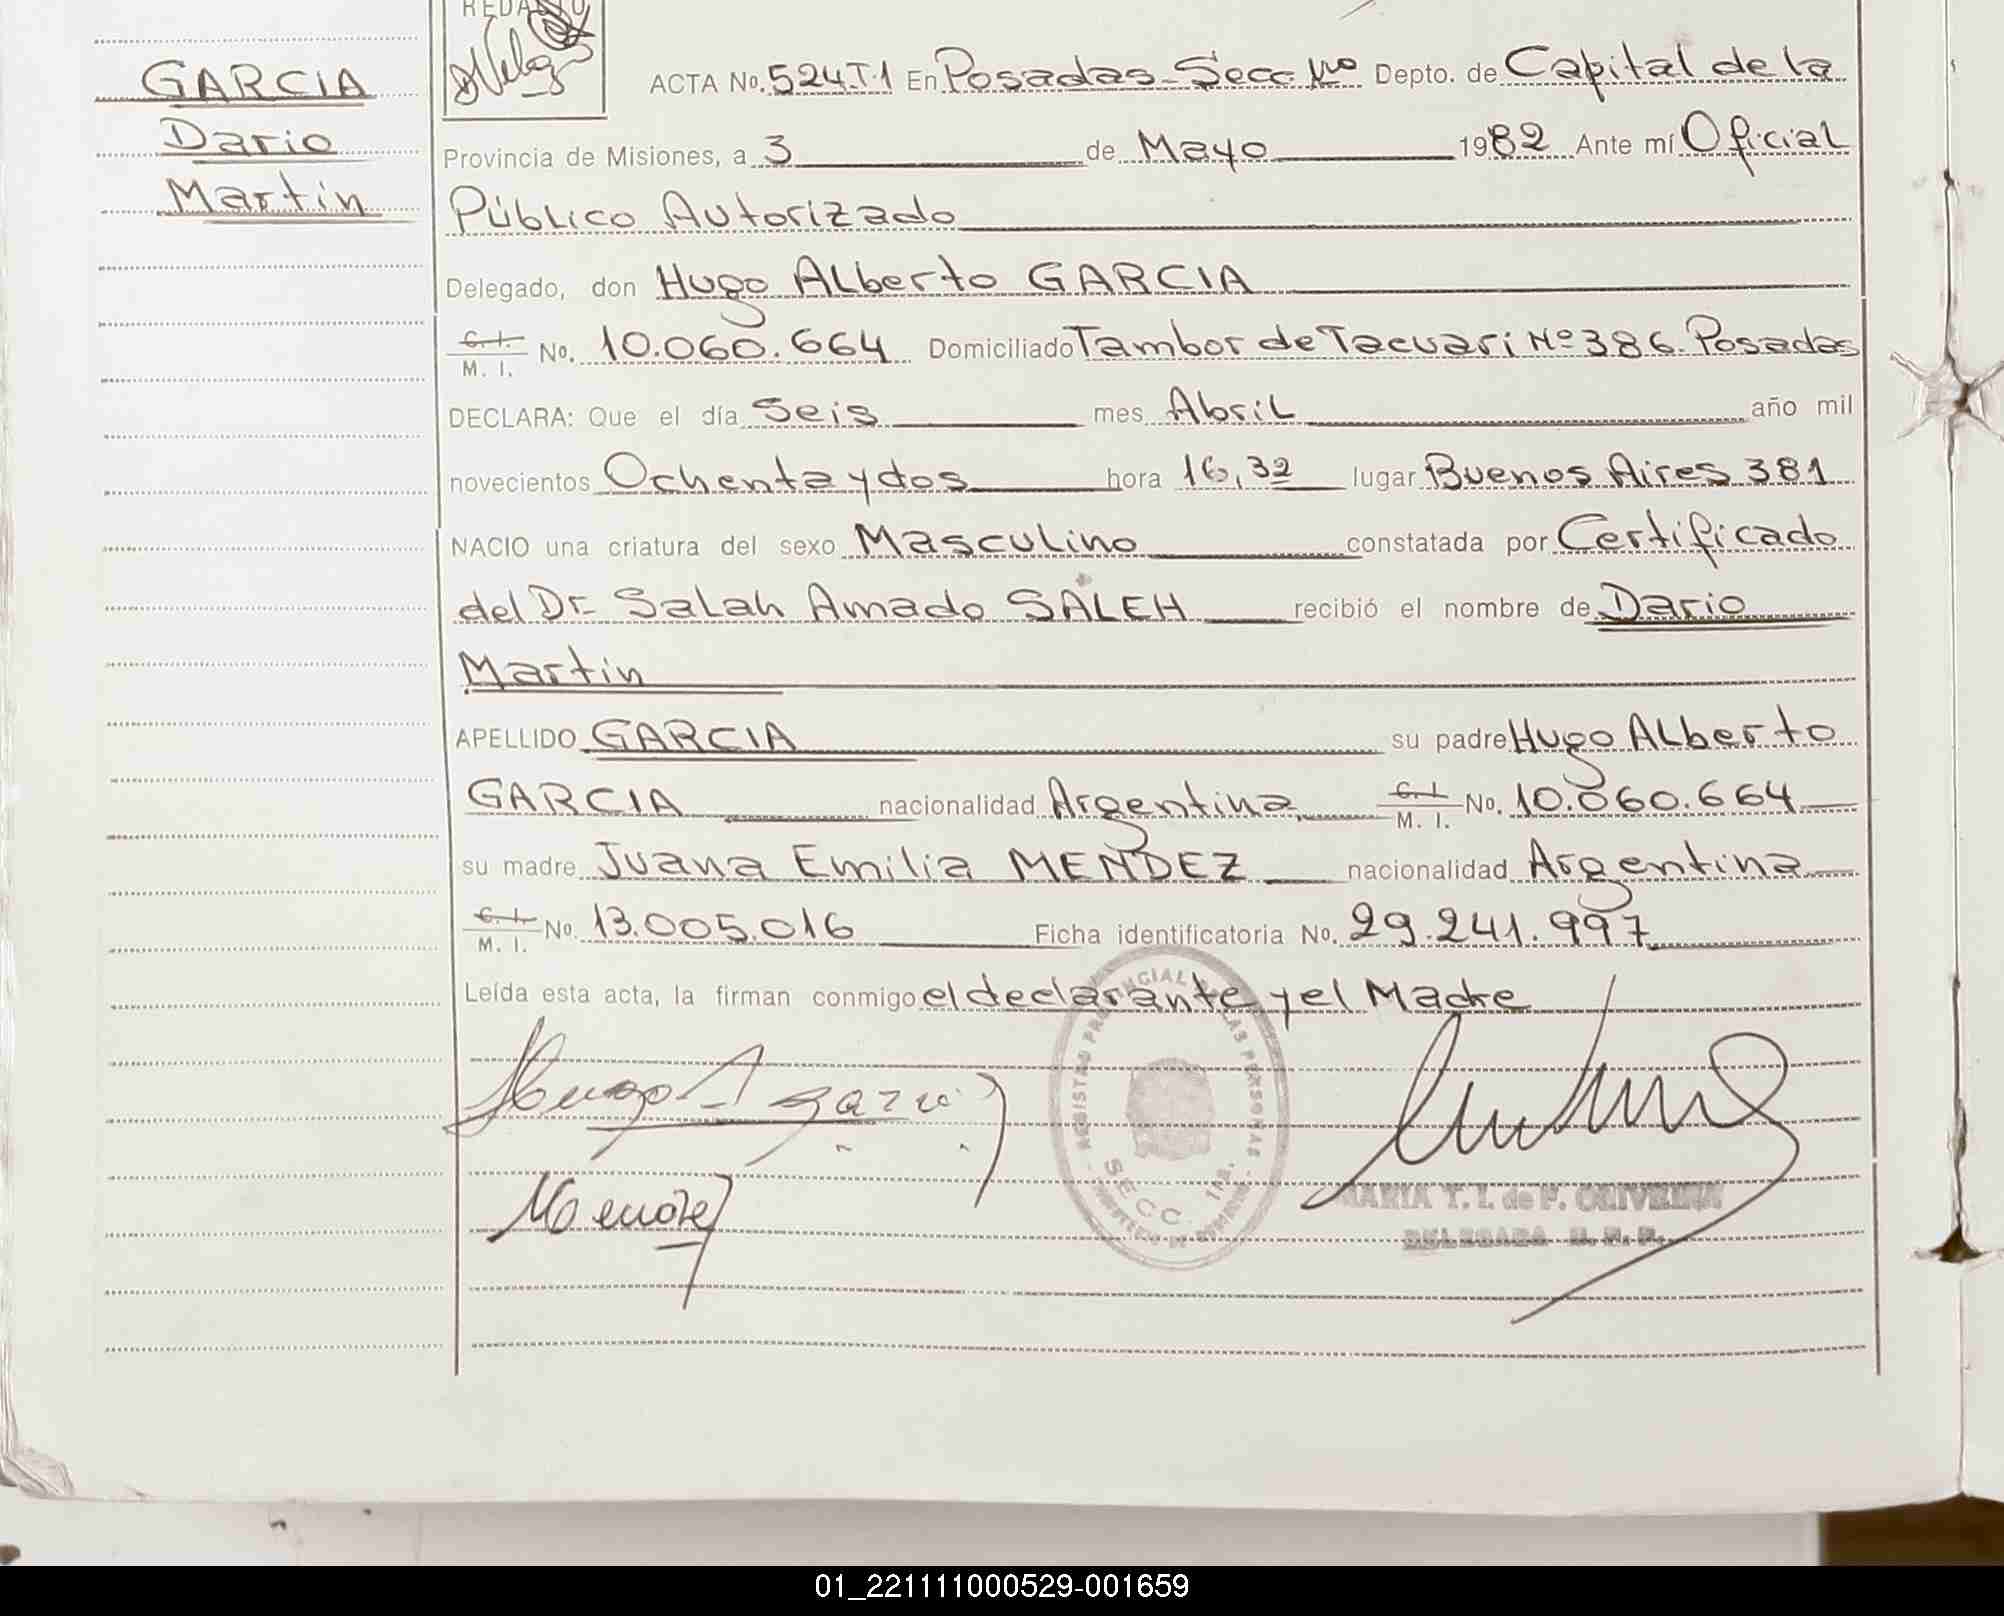 REDACTO
GARCIA
Dario
Martin
ACTA No. 524.T.1 En Posadas-Secc. 1ro Depto. de Capital de la
Provincia de Misiones, a 3 de Mayo 1982 Ante mí Oficial
Público Autorizado
Delegado, don Hugo Alberto GARCIA
C. I. / M. I. No. 10.060.664 Domiciliado Tambor de Tacuari Nº 386 Posadas
DECLARA: Que el día Seis mes Abril año mil
novecientos Ochenta y dos hora 16,32 lugar Buenos Aires 381
NACIO una criatura del sexo Masculino constatada por Certificado
del Dr. Salah Amado SALEH recibió el nombre de Dario
Martin
APELLIDO GARCIA su padre Hugo Alberto
GARCIA nacionalidad Argentina C. I. / M. I. No. 10.060.664
su madre Juana Emilia MENDEZ nacionalidad Argentina
C. I. / M. I. No. 13.005.016 Ficha identificatoria No. 29.241.997
Leída esta acta, la firman conmigo el declarante y el Madre
Hugo A Garcia
Mendez
REGISTRO PROVINCIAL DE LAS PERSONAS
SECC. 1ra.
MARIA T. I. de F. OLIVEIRA
DELEGADA R. P. P.
01_221111000529-001659